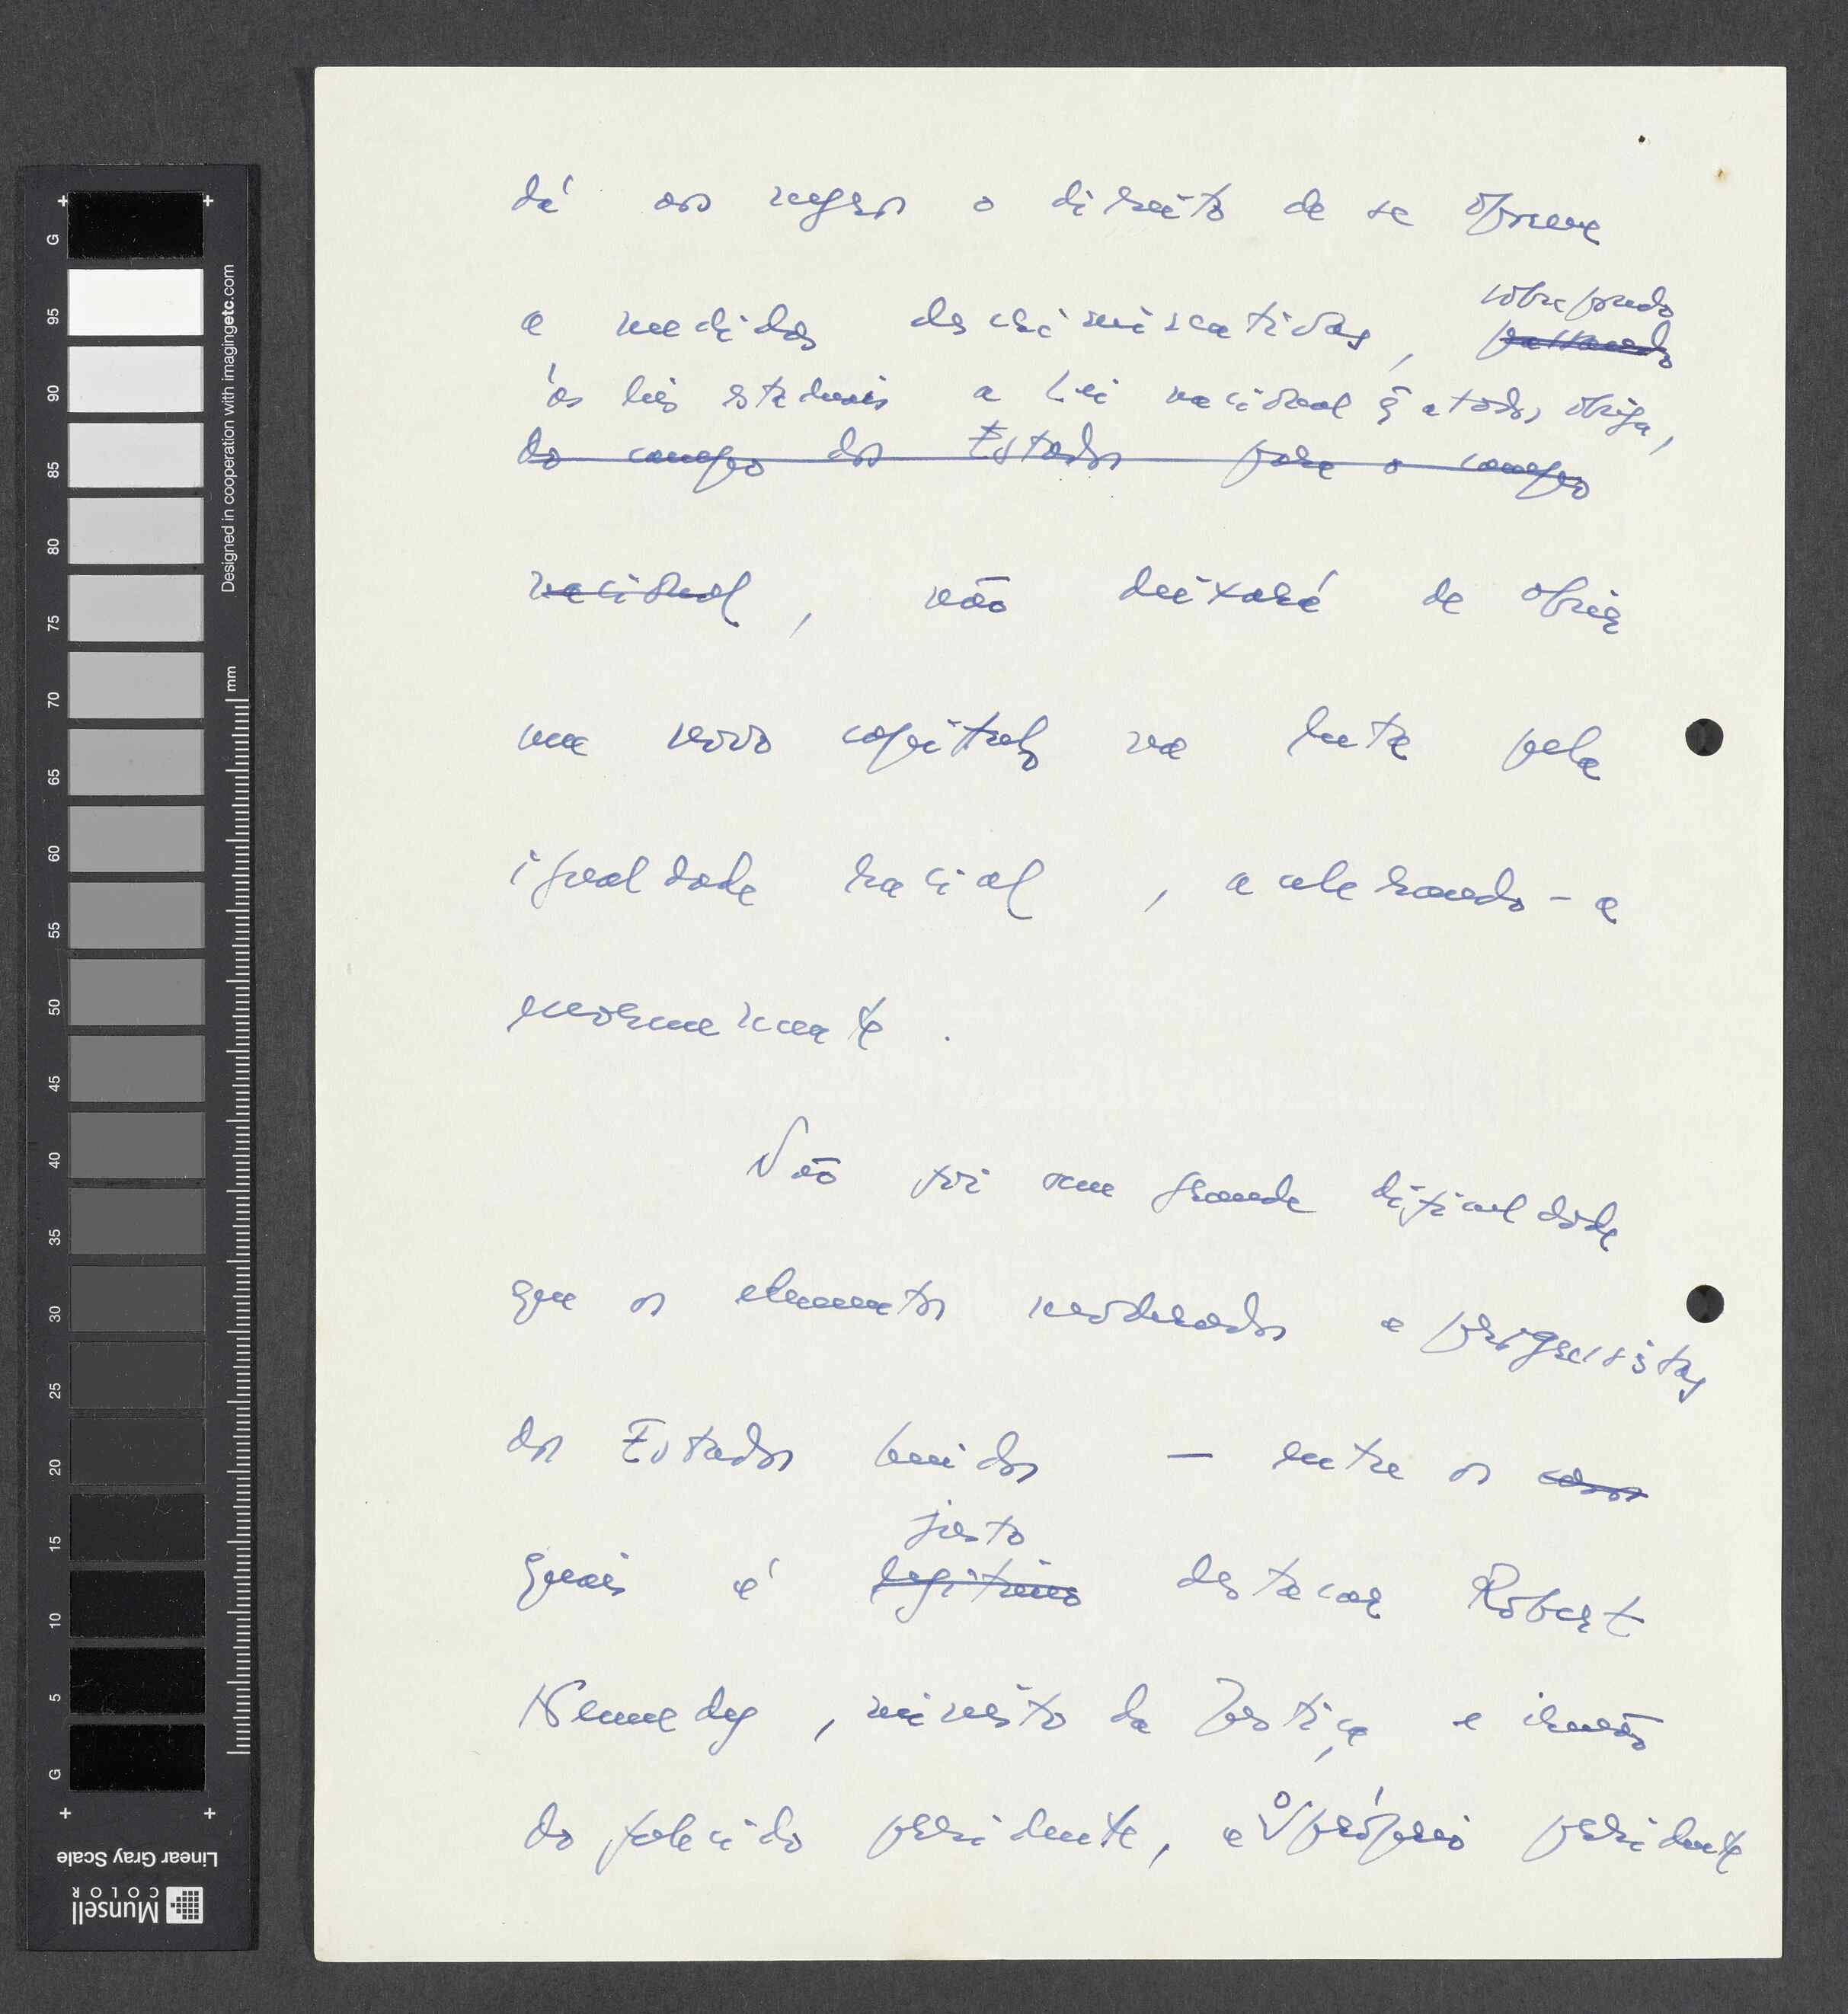 dá aos negros o direito de se oporem
a medidas descriminativas, sobrepondo
passando
às leis estaduais a lei nacional q̃ a todos obriga,
do campo dos Estados para o campo
nacional, não deixará de abrir
um novo capítulo na luta pela
igualdade racial, acelerando-a
enormemente.
Não foi sem grande dificuldade
que os elementos moderados e progressistas
dos Estados Unidos — entre os
justo
quais é legítimo destacar Robert
Kennedy, ministro da Justiça e irmão
do falecido presidente, e o próprio presidente
G
95
90
85
80
75
70
65
60
55
50
45
40
35
30
25
20
15
10
5
G
mm
Designed in cooperation with imagingetc.com
Linear Gray Scale
Munsell
COLOR